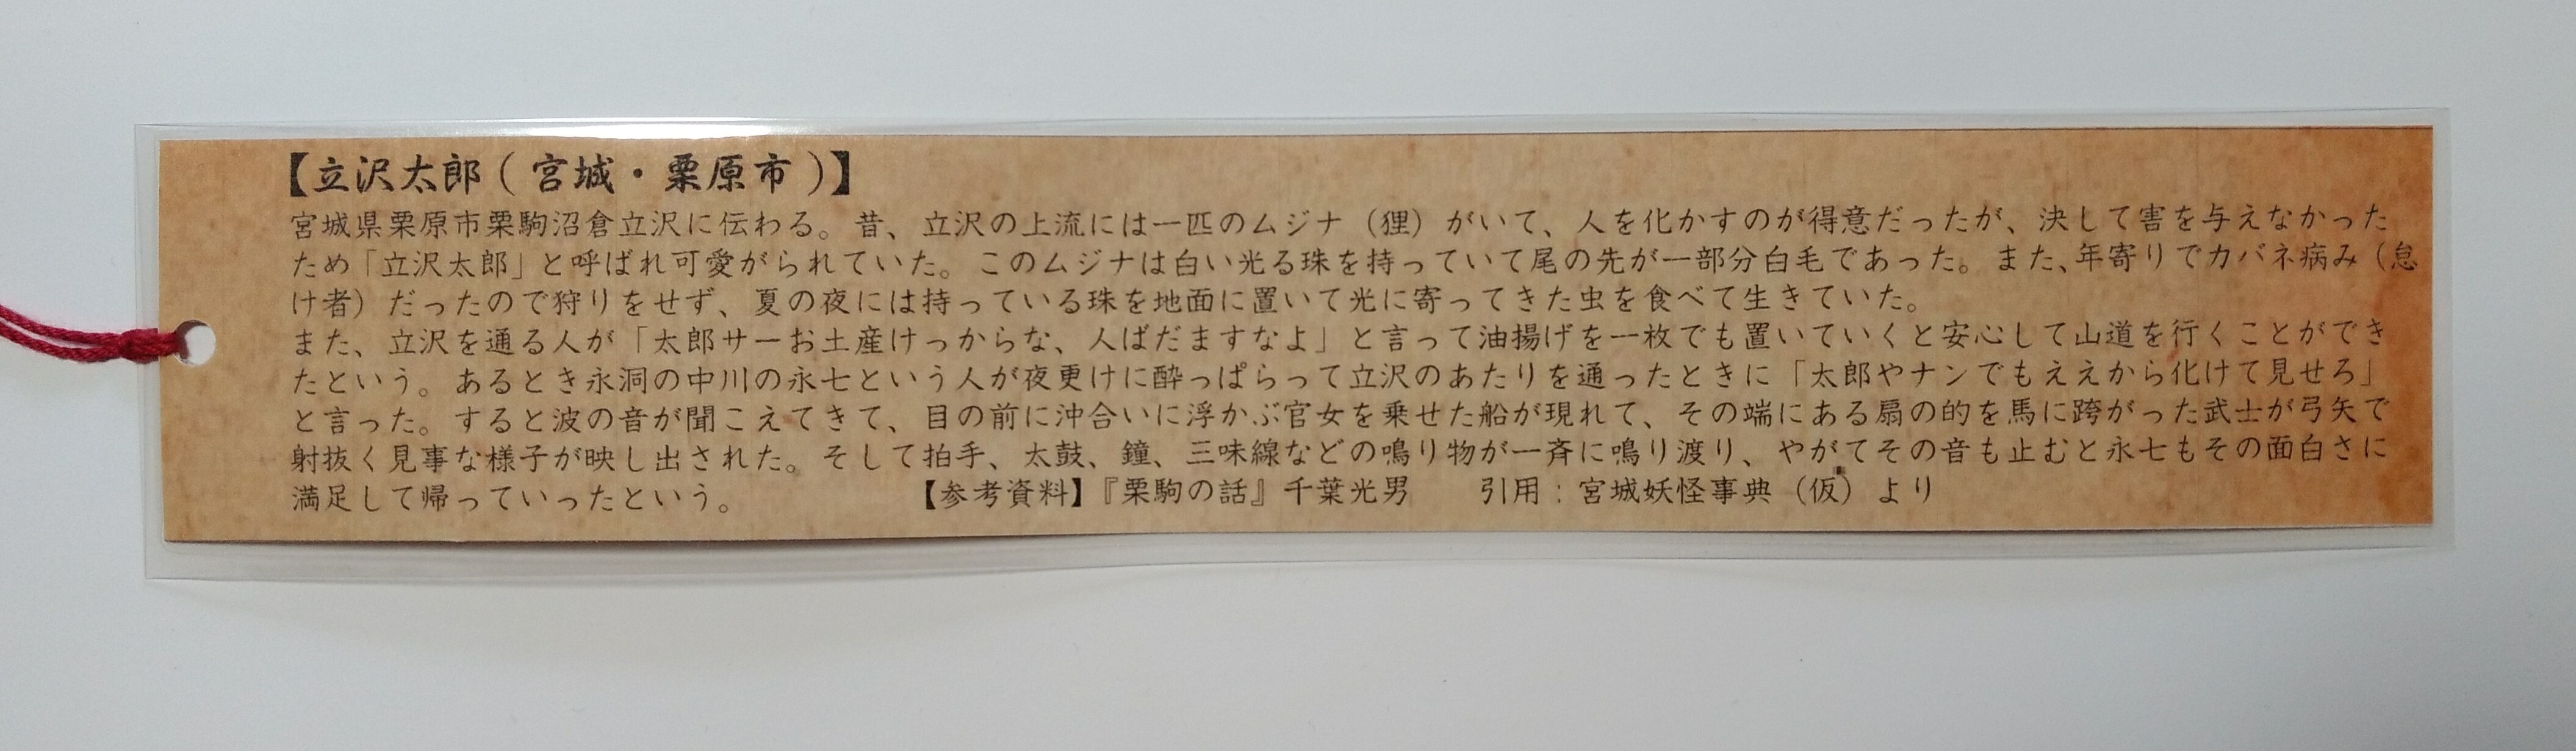 【立沢太郎(宮城・栗原市)】
宮城県栗原市栗駒沼倉立沢に伝わる。昔、立沢の上流には一匹のムジナ（狸）がいて、人を化かすのが得意だったが、決して害を与えなかった
ため「立沢太郎」と呼ばれ可愛がられていた。このムジナは白い光る珠を持っていて尾の先が一部分白毛であった。また、年寄りでカバネ病み（怠
け者）だったので狩りをせず、夏の夜には持っている珠を地面に置いて光に寄ってきた虫を食べて生きていた。
また、立沢を通る人が「太郎サーお土産けっからな、人ばだますなよ」と言って油揚げを一枚でも置いていくと安心して山道を行くことができ
たという。あるとき永洞の中川の永七という人が夜更けに酔っぱらって立沢のあたりを通ったときに「太郎やナンでもええから化けて見せろ」
と言った。すると波の音が聞こえてきて、目の前に沖合いに浮かぶ官女を乗せた船が現れて、その端にある扇の的を馬に跨がった武士が弓矢で
射抜く見事な様子が映し出された。そして拍手、太鼓、鐘、三味線などの鳴り物が一斉に鳴り渡り、やがてその音も止むと永七もその面白さに
満足して帰っていったという。　【参考資料】『栗駒の話』千葉光男　引用：宮城妖怪事典（仮）より